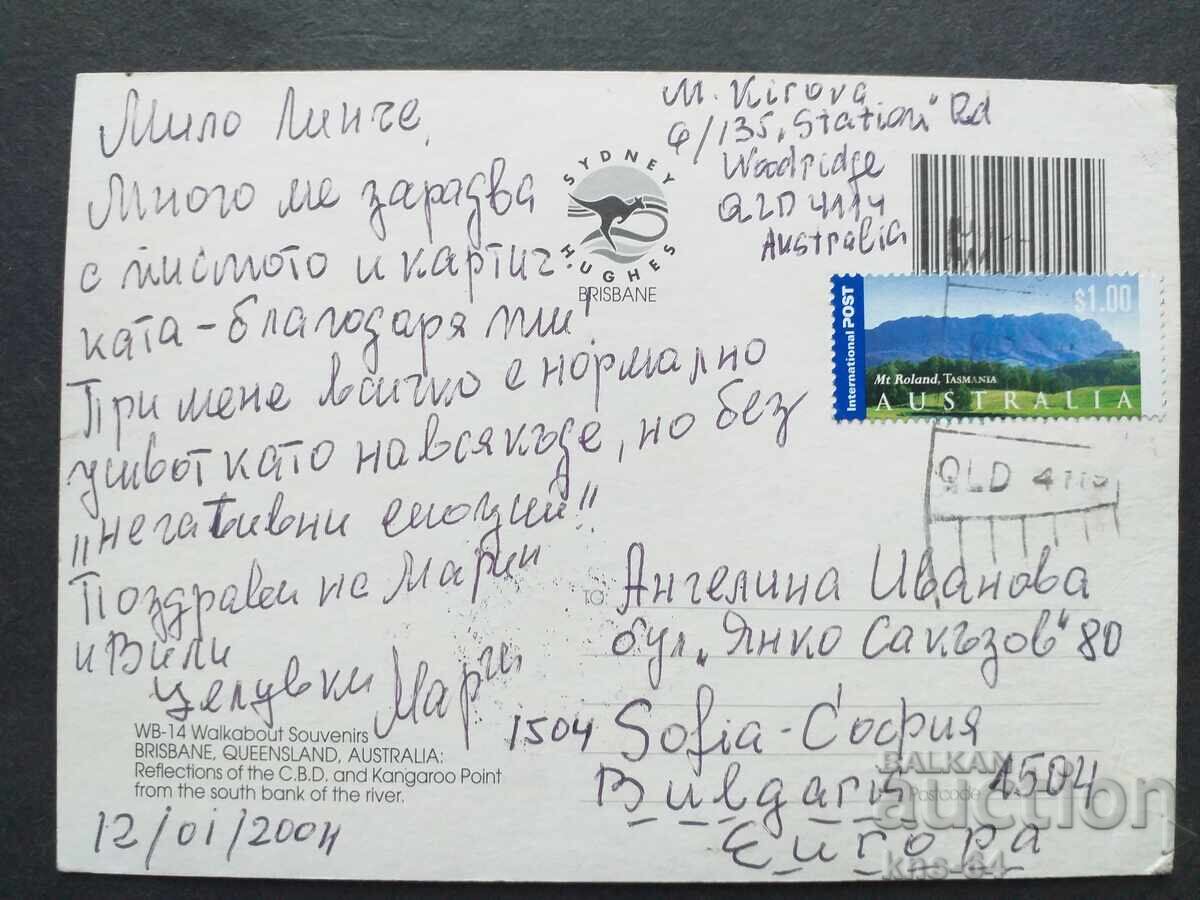 Мило Линче,
Много ме зарадва
с писмото и картич-
ката - благодаря ти!
При мене всичко е нормално
живот като навсякъде, но без
"негативни емоции"!
Поздрави на Марин
и Вили
Целувки Марги
WB-14 Walkabout Souvenirs
BRISBANE, QUEENSLAND, AUSTRALIA:
Reflections of the C.B.D. and Kangaroo Point
from the south bank of the river.
12/01/2004
SYDNEY
HUGHES
BRISBANE
M. Kirova
4/135, "Station" Rd
Woodridge
QLD 4114
Australia
International POST
$1.00
Mt Roland, TASMANIA
AUSTRALIA
QLD
TO
Ангелина Иванова
бул. "Янко Сакъзов" 80
1504 Sofia - София
Bulgaria Postcode 1504
Европа
BALKAN
auction
kns-64